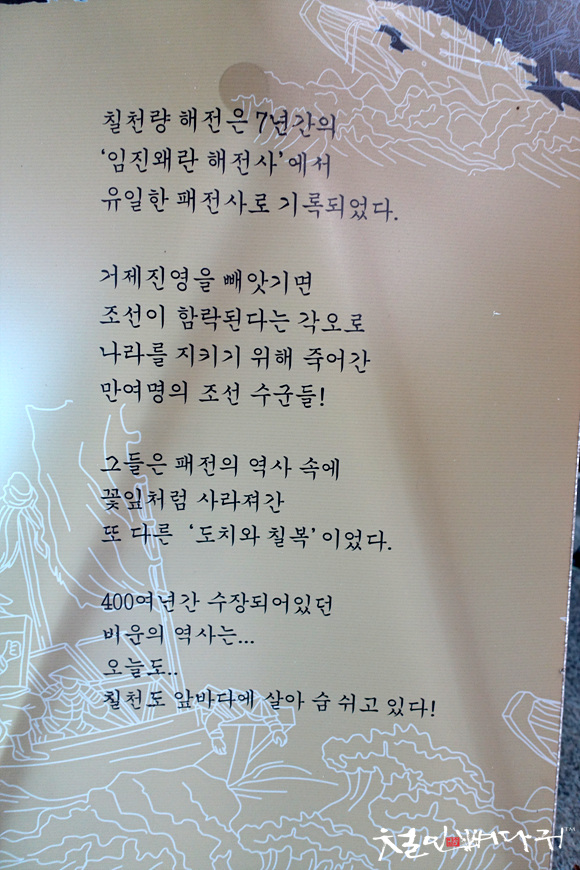 칠천량 해전은 7년간의
'임진왜란 해전사'에서
유일한 패전사로 기록되었다.
거제진영을 빼앗기면
조선이 함락된다는 각오로
나라를 지키기 위해 죽어간
만여명의 조선 수군들!
그들은 패전의 역사 속에
꽃잎처럼 사라져간
또 다른 '도치와 칠복'이었다.
400여년간 수장되어있던
비운의 역사는...
오늘도..
칠천도 앞바다에 살아 숨 쉬고 있다!